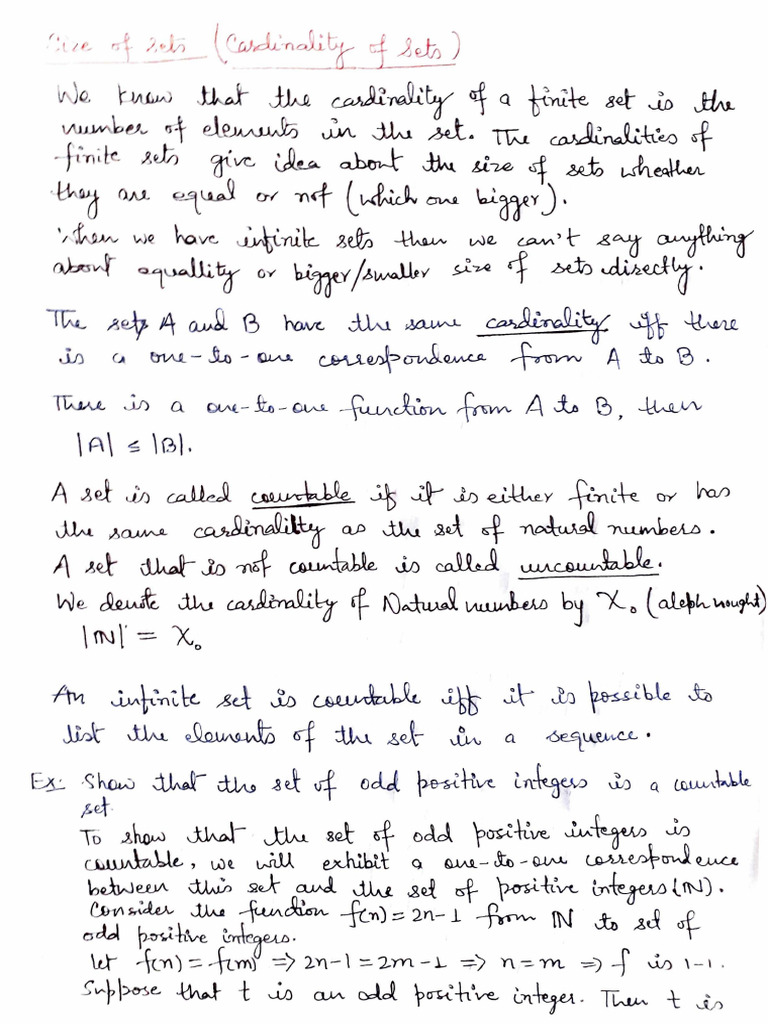 Size of sets (Cardinality of Sets)
We know that the cardinality of a finite set is the
number of elements in the set. The cardinalities of
finite sets give idea about the size of sets wheather
they are equal or not (which one bigger).
When we have infinite sets then we can't say anything
about equallity or bigger/smaller size of sets directly.
The sets A and B have the same cardinality iff there
is a one-to-one correspondence from A to B.
There is a one-to-one function from A to B, then
|A| ≤ |B|.
A set is called countable if it is either finite or has
the same cardinality as the set of natural numbers.
A set that is not countable is called uncountable.
We denote the cardinality of Natural numbers by ℵ₀ (aleph nought)
|ℕ| = ℵ₀
An infinite set is countable iff it is possible to
list the elements of the set in a sequence.
Ex: Show that the set of odd positive integers is a countable
set.
To show that the set of odd positive integers is
countable, we will exhibit a one-to-one correspondence
between this set and the set of positive integers (ℕ).
Consider the function f(n) = 2n-1 from ℕ to set of
odd positive integers.
let f(n) = f(m) ⇒ 2n-1 = 2m-1 ⇒ n = m ⇒ f is 1-1.
Suppose that t is an odd positive integer. Then t is